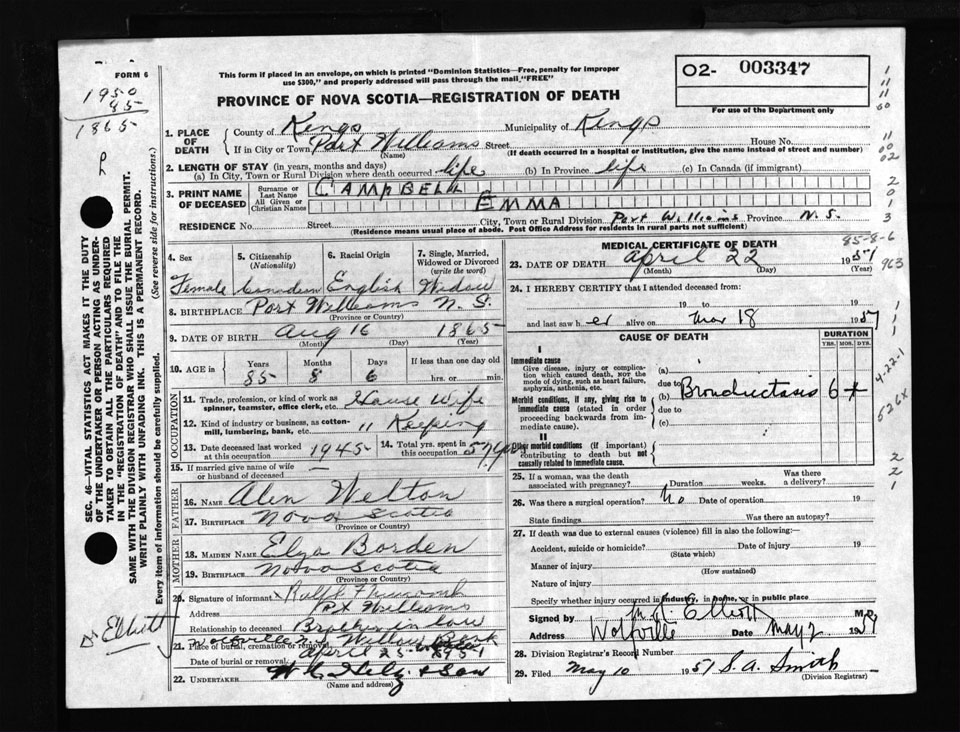 FORM 6
This form if placed in an envelope, on which is printed "Dominion Statistics—Free, penalty for improper
use $300," and properly addressed will pass through the mail "FREE"
O2- 003347
For use of the Department only
PROVINCE OF NOVA SCOTIA—REGISTRATION OF DEATH
1950
85
1865
1. PLACE OF DEATH
County of Kings Municipality of Kings
If in City or Town Port Williams Street House No.
(Name) (If death occurred in a hospital or institution, give the name instead of street and number)
2. LENGTH OF STAY (in years, months and days)
(a) In City, Town or Rural Division where death occurred life (b) In Province life (c) In Canada (if immigrant)
3. PRINT NAME OF DECEASED
Surname or Last Name CAMPBELL
All Given or Christian Names EMMA
RESIDENCE No. Street City, Town or Rural Division Port Williams Province N.S.
(Residence means usual place of abode. Post Office Address for residents in rural parts not sufficient)
4. Sex Female
5. Citizenship (Nationality) Canadian
6. Racial Origin English
7. Single, Married, Widowed or Divorced (write the word) Widow
8. BIRTHPLACE Port Williams N.S.
(Province or Country)
9. DATE OF BIRTH Aug 16 1865
(Month) (Day) (Year)
10. AGE in Years Months Days If less than one day old
85 8 6 hrs. or min.
OCCUPATION
11. Trade, profession, or kind of work as spinner, teamster, office clerk, etc. House Wife
12. Kind of industry or business, as cotton-mill, lumbering, bank, etc. " Keeping
13. Date deceased last worked at this occupation 1945
14. Total yrs. spent in this occupation 57 yrs
15. If married give name of wife or husband of deceased —
FATHER
16. Name Welton
17. BIRTHPLACE Nova Scotia
(Province or Country)
MOTHER
18. MAIDEN NAME Elza Borden
19. BIRTHPLACE Nova Scotia
(Province or Country)
20. Signature of informant Ralph
Address Pt Williams
Relationship to deceased Brother in law
21. Place of burial, cremation or removal Wolfville N.S. Willow Bank
Date of burial or removal April 25 1951
22. UNDERTAKER & Son
(Name and address)
MEDICAL CERTIFICATE OF DEATH
85-8-6
23. DATE OF DEATH April 22 1951
(Month) (Day) (Year)
24. I HEREBY CERTIFY that I attended deceased from:
19 to 19
and last saw her alive on Mar 18 1951
CAUSE OF DEATH
DURATION
YRS. MOS. DYS.
I
Immediate cause
Give disease, injury or complication which caused death, NOR the mode of dying, such as heart failure, asphyxia, asthenia, etc.
(a)
due to
Morbid conditions, if any, giving rise to immediate cause (stated in order proceeding backwards from immediate cause).
(b) Bronchectasis 6 +
due to
(c)
II
Other morbid conditions (if important) contributing to death but not causally related to immediate cause.
25. If a woman, was the death associated with pregnancy? Duration weeks. Was there a delivery?
26. Was there a surgical operation? No Date of operation 19
State findings Was there an autopsy?
27. If death was due to external causes (violence) fill in also the following:
Accident, suicide or homicide? Date of injury 19
(State which)
Manner of injury
(How sustained)
Nature of injury
Specify whether injury occurred in industry, in home, or in public place
Signed by Elliott M.D.
Address Wolfville Date May 2 1951
28. Division Registrar's Record Number
29. Filed May 10 1951 S. A. Smith
(Division Registrar)
SEC. 46—VITAL STATISTICS ACT MAKES IT THE DUTY
OF THE UNDERTAKER OR PERSON ACTING AS UNDERTAKER
TO OBTAIN ALL THE PARTICULARS REQUIRED
IN THE "REGISTRATION OF DEATH" AND TO FILE THE
SAME WITH THE DIVISION REGISTRAR WHO SHALL ISSUE THE BURIAL PERMIT.
WRITE PLAINLY WITH UNFADING INK. THIS IS A PERMANENT RECORD.
Every item of information should be carefully supplied. (See reverse side for instructions.)
Dr Elliott
963
4-22-1
526X